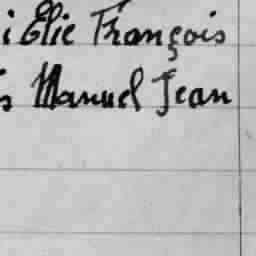 i Elie François
s Manuel Jean